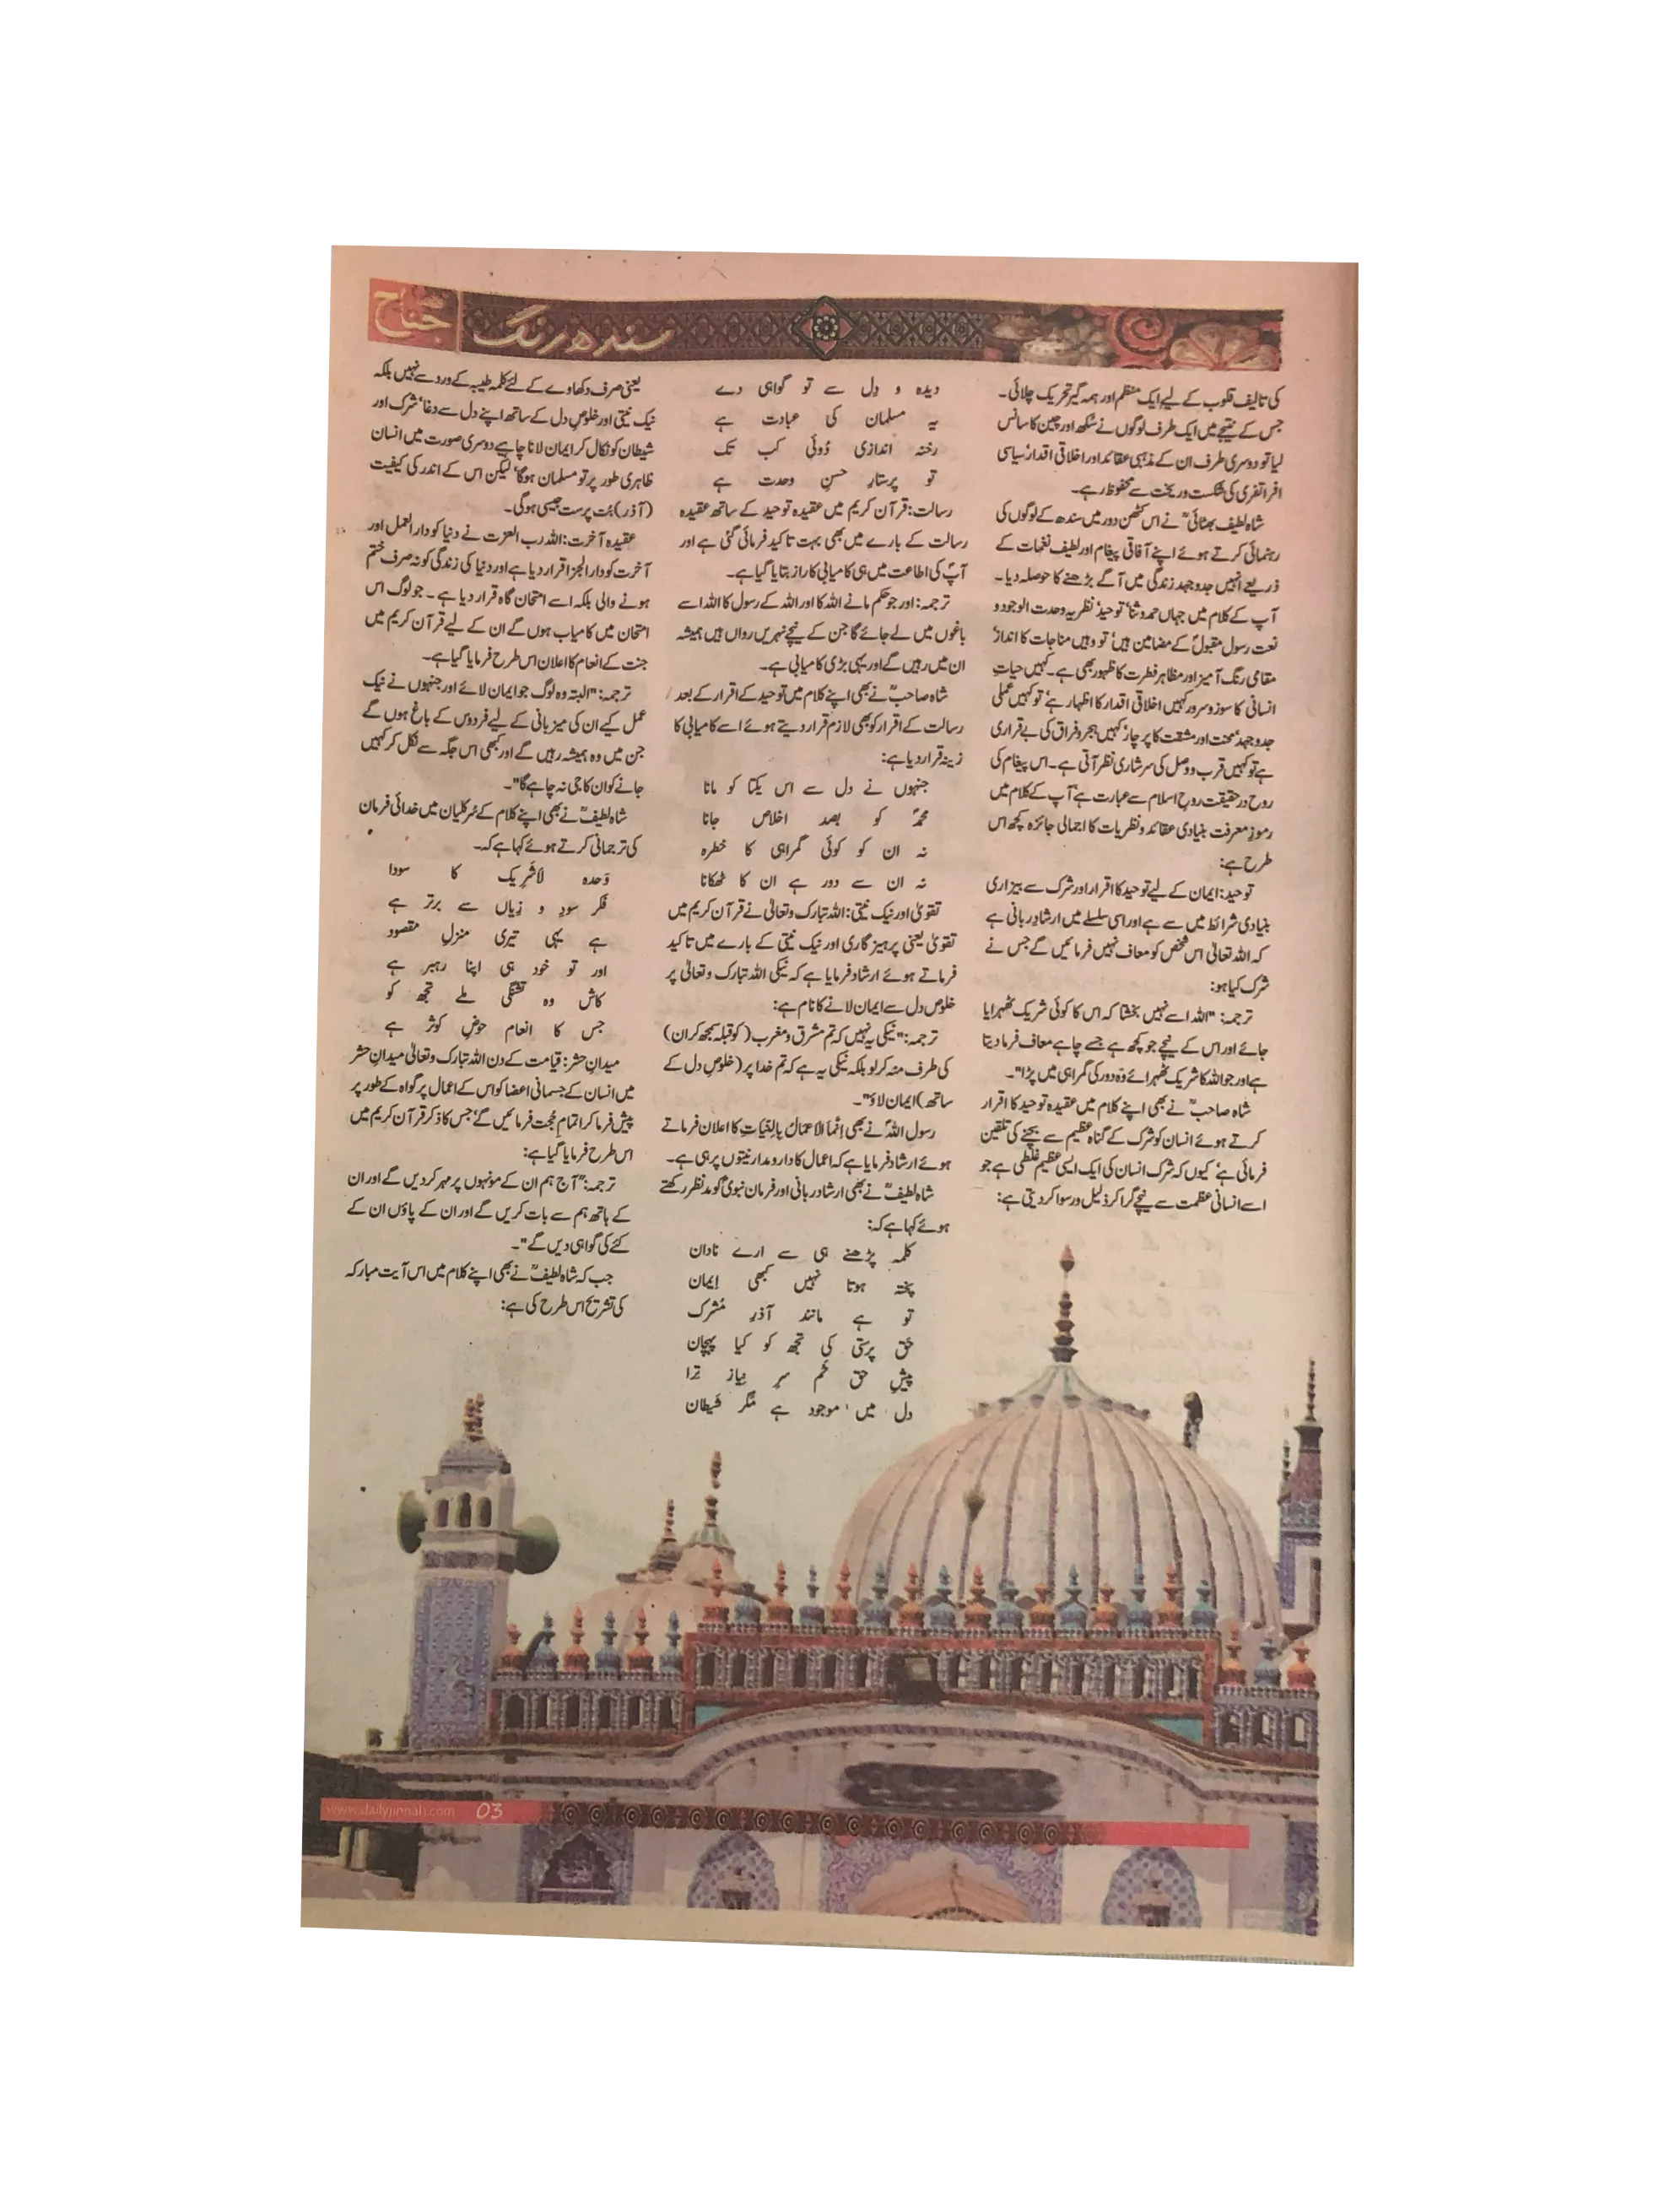 جناح
سندھ رنگ
کی تالیف قلوب کے لیے ایک منظم اور ہمہ گیر تحریک چلائی۔
جس کے نتیجے میں ایک طرف لوگوں نے سکھ اور چین کا سانس
لیا تو دوسری طرف ان کے مذہبی عقائد اور اخلاقی اقدار' سیاسی
افراتفری کی شکست و ریخت سے محفوظ رہے۔
شاہ لطیف بھٹائیؒ نے اس کٹھن دور میں سندھ کے لوگوں کی
رہنمائی کرتے ہوئے اپنے آفاقی پیغام اور لطیف نغمات کے
ذریعے انہیں جدوجہد زندگی میں آگے بڑھنے کا حوصلہ دیا۔
آپ کے کلام میں جہاں حمد و ثنا' توحید' نظریہ وحدت الوجود و
نعت رسول مقبولؐ کے مضامین ہیں' تو وہیں مناجات کا انداز'
مقامی رنگ آمیز اور مظاہر فطرت کا ظہور بھی ہے۔ کہیں حیاتِ
انسانی کا سوز و سرور کہیں اخلاقی اقدار کا اظہار ہے' تو کہیں عملی
جدوجہد' محنت اور مشقت کا پرچار' کہیں ہجر و فراق کی بے قراری
ہے تو کہیں قرب و وصل کی سرشاری نظر آتی ہے۔ اس پیغام کی
روح درحقیقت روحِ اسلام سے عبارت ہے' آپ کے کلام میں
رموزِ معرفت بنیادی عقائد و نظریات کا اجمالی جائزہ کچھ اس
طرح ہے:
توحید: ایمان کے لیے توحید کا اقرار اور شرک سے بیزاری
بنیادی شرائط میں سے ہے اور اسی سلسلے میں ارشادِ ربانی ہے
کہ اللہ تعالیٰ اس شخص کو معاف نہیں فرمائیں گے جس نے
شرک کیا ہو:
ترجمہ: "اللہ اسے نہیں بخشتا کہ اس کا کوئی شریک ٹھہرایا
جائے اور اس کے نیچے جو کچھ ہے جسے چاہے معاف فرما دیتا
ہے اور جو اللہ کا شریک ٹھہرائے وہ دور کی گمراہی میں پڑا"۔
شاہ صاحبؒ نے بھی اپنے کلام میں عقیدہ توحید کا اقرار
کرتے ہوئے انسان کو شرک کے گناہ عظیم سے بچنے کی تلقین
فرمائی ہے' کیوں کہ شرک انسان کی ایک ایسی عظیم غلطی ہے جو
اسے انسانی عظمت سے نیچے گرا کر ذلیل و رسوا کر دیتی ہے:
دیدہ و دِل سے تو گواہی دے
یہ مسلمان کی عبادت ہے
رخنہ اندازیِ دُوئی کب تک
تو پرستارِ حسنِ وحدت ہے
رسالت: قرآن کریم میں عقیدہ توحید کے ساتھ عقیدہ
رسالت کے بارے میں بھی بہت تاکید فرمائی گئی ہے اور
آپؐ کی اطاعت میں ہی کامیابی کا راز بتایا گیا ہے۔
ترجمہ: اور جو حکم مانے اللہ کا اور اللہ کے رسول کا اللہ اسے
باغوں میں لے جائے گا جن کے نیچے نہریں رواں ہیں ہمیشہ
ان میں رہیں گے اور یہی بڑی کامیابی ہے۔
شاہ صاحبؒ نے بھی اپنے کلام میں توحید کے اقرار کے بعد
رسالت کے اقرار کو بھی لازم قرار دیتے ہوئے اسے کامیابی کا
زینہ قرار دیا ہے:
جنہوں نے دل سے اس یکتا کو مانا
محمدؐ کو بصد اخلاص جانا
نہ ان کو کوئی گمراہی کا خطرہ
نہ ان سے دور ہے ان کا ٹھکانا
تقویٰ اور نیک نیتی: اللہ تبارک و تعالیٰ نے قرآن کریم میں
تقویٰ یعنی پرہیزگاری اور نیک نیتی کے بارے میں تاکید
فرماتے ہوئے ارشاد فرمایا ہے کہ نیکی اللہ تبارک و تعالیٰ پر
خلوصِ دل سے ایمان لانے کا نام ہے:
ترجمہ: "نیکی یہ نہیں کہ تم مشرق و مغرب (کو قبلہ سمجھ کر ان)
کی طرف منہ کر لو بلکہ نیکی یہ ہے کہ تم خدا پر (خلوصِ دل کے
ساتھ) ایمان لاؤ"۔
رسول اللہؐ نے بھی اِنَّمَا الاَعمَالُ بِالنِّیَّاتِ کا اعلان فرماتے
ہوئے ارشاد فرمایا ہے کہ اعمال کا دار و مدار نیتوں پر ہی ہے۔
شاہ لطیفؒ نے بھی ارشاد ربانی اور فرمان نبویؐ کو مدنظر رکھتے
ہوئے کہا ہے کہ:
کلمہ پڑھنے ہی سے ارے نادان
پختہ ہوتا نہیں کبھی ایمان
تو ہے مانند آذرِ مُشرک
حق پرستی کی تجھ کو کیا پہچان
پیشِ حق خم سرِ نیاز ترا
دل میں موجود ہے مگر شیطان
یعنی صرف دکھاوے کے لئے کلمہ طیبہ کے ورد سے نہیں بلکہ
نیک نیتی اور خلوصِ دل کے ساتھ اپنے دل سے دغا' شرک اور
شیطان کو نکال کر ایمان لانا چاہیے دوسری صورت میں انسان
ظاہری طور پر تو مسلمان ہوگا' لیکن اس کے اندر کی کیفیت
(آذر) بت پرست جیسی ہوگی۔
عقیدہ آخرت: اللہ رب العزت نے دنیا کو دار العمل اور
آخرت کو دار الجزا قرار دیا ہے اور دنیا کی زندگی کو نہ صرف ختم
ہونے والی بلکہ اسے امتحان گاہ قرار دیا ہے۔ جو لوگ اس
امتحان میں کامیاب ہوں گے ان کے لیے قرآن کریم میں
جنت کے انعام کا اعلان اس طرح فرمایا گیا ہے۔
ترجمہ: "البتہ وہ لوگ جو ایمان لائے اور جنہوں نے نیک
عمل کیے ان کی میزبانی کے لیے فردوس کے باغ ہوں گے
جن میں وہ ہمیشہ رہیں گے اور کبھی اس جگہ سے نکل کر کہیں
جانے کو ان کا جی نہ چاہے گا"۔
شاہ لطیفؒ نے بھی اپنے کلام کے سُر کلیان میں خدائی فرمان
کی ترجمانی کرتے ہوئے کہا ہے کہ۔
وَحدہ لاَشَرِیک کا سودا
فکر سود و زیاں سے برتر ہے
ہے یہی تیری منزلِ مقصود
اور تو خود ہی اپنا رہبر ہے
کاش وہ تشنگی ملے تجھ کو
جس کا انعام حوضِ کوثر ہے
میدانِ حشر: قیامت کے دن اللہ تبارک و تعالیٰ میدانِ حشر
میں انسان کے جسمانی اعضا کو اس کے اعمال پر گواہ کے طور پر
پیش فرما کر اتمام حُجت فرمائیں گے' جس کا ذکر قرآن کریم میں
اس طرح فرمایا گیا ہے:
ترجمہ: "آج ہم ان کے مونہوں پر مہر کر دیں گے اور ان
کے ہاتھ ہم سے بات کریں گے اور ان کے پاؤں ان کے
کئے کی گواہی دیں گے"۔
جب کہ شاہ لطیفؒ نے بھی اپنے کلام میں اس آیت مبارکہ
کی تشریح اس طرح کی ہے:
www.dailyjinnah.com 03